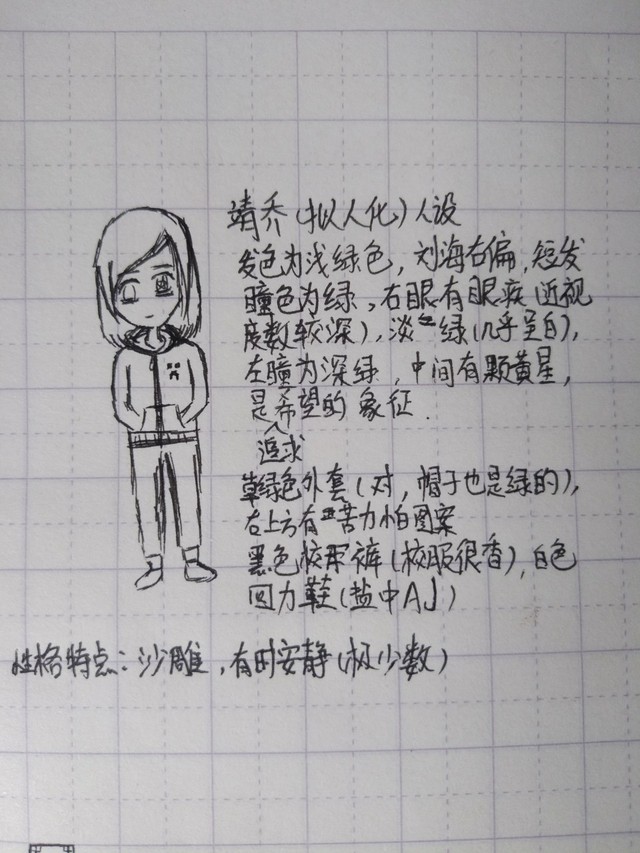 靖乔(拟人化)人设
发色为浅绿色,刘海右偏,短发
瞳色为绿,右眼有眼疾(近视
度数较深),淡绿(几乎呈白),
左瞳为深绿,中间有颗黄星,
是希望的象征.
追求
草绿色外套(对,帽子也是绿的),
右上方有苦力怕图案
黑色校军裤(校服很香),白色
回力鞋(盐中AJ)
性格特点:沙雕,有时安静(极少数)